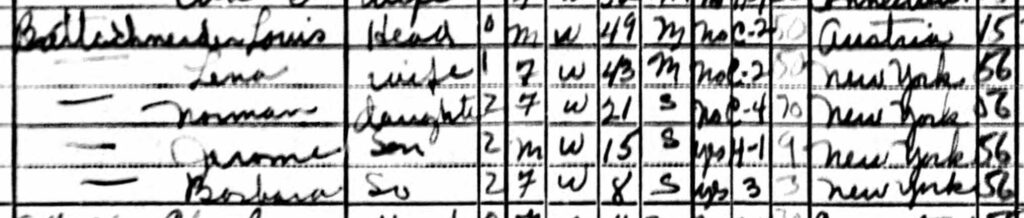 Louis Head 0 M W 49 M No C-2 50 Austria 15
Lena Wife 1 F W 43 M No C-2 50 New York 56
— Norman daughte 2 F W 21 S No C-4 70 New York 56
— Jerome Son 2 M W 15 S yes H-1 9 New York 56
— Barbara So 2 F W 8 S yes 3 3 New York 56